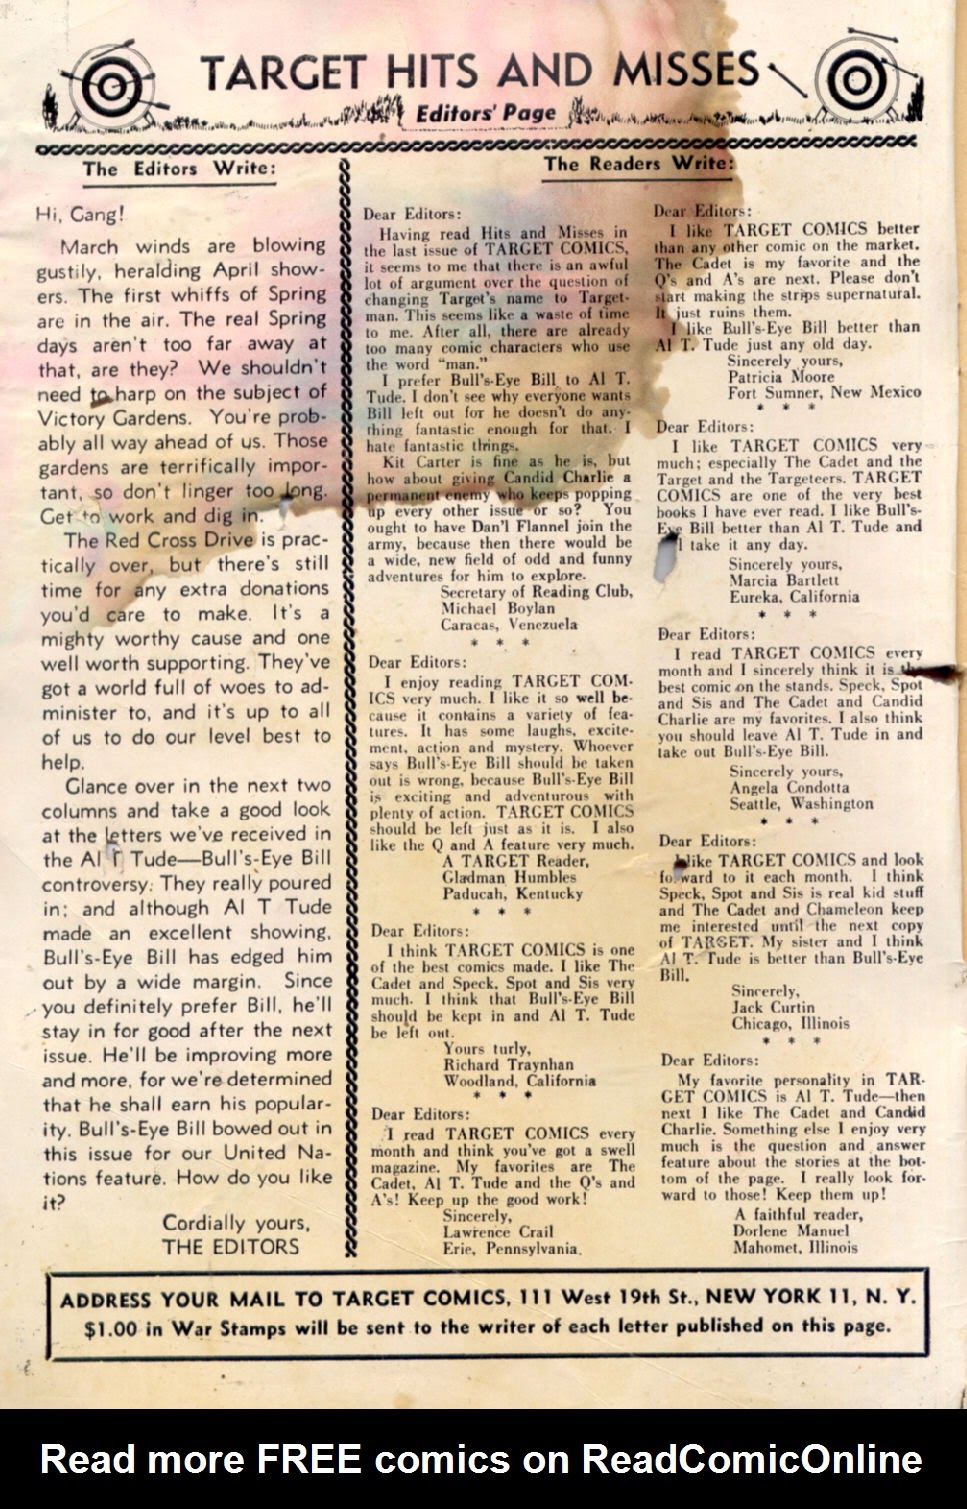 TARGET HITS AND MISSES
Editors' Page
The Editors Write:
Hi, Gang!
March winds are blowing
gustily, heralding April show-
ers. The first whiffs of Spring
are in the air. The real Spring
days aren't too far away at
that, are they? We shouldn't
need to harp on the subject of
Victory Gardens. You're prob-
ably all way ahead of us. Those
gardens are terrifically impor-
tant, so don't linger too long.
Get to work and dig in.
The Red Cross Drive is prac-
tically over, but there's still
time for any extra donations
you'd care to make. It's a
mighty worthy cause and one
well worth supporting. They've
got a world full of woes to ad-
minister to, and it's up to all
of us to do our level best to
help.
Glance over in the next two
columns and take a good look
at the letters we've received in
the Al T Tude—Bull's-Eye Bill
controversy. They really poured
in; and although Al T Tude
made an excellent showing,
Bull's-Eye Bill has edged him
out by a wide margin. Since
you definitely prefer Bill, he'll
stay in for good after the next
issue. He'll be improving more
and more, for we're determined
that he shall earn his popular-
ity. Bull's-Eye Bill bowed out in
this issue for our United Na-
tions feature. How do you like
it?
Cordially yours,
THE EDITORS
The Readers Write:
Dear Editors:
Having read Hits and Misses in
the last issue of TARGET COMICS,
it seems to me that there is an awful
lot of argument over the question of
changing Target's name to Target-
man. This seems like a waste of time
to me. After all, there are already
too many comic characters who use
the word "man."
I prefer Bull's-Eye Bill to Al T.
Tude. I don't see why everyone wants
Bill left out for he doesn't do any-
thing fantastic enough for that. I
hate fantastic things.
Kit Carter is fine as he is, but
how about giving Candid Charlie a
permanent enemy who keeps popping
up every other issue or so? You
ought to have Dan'l Flannel join the
army, because then there would be
a wide, new field of odd and funny
adventures for him to explore.
Secretary of Reading Club,
Michael Boylan
Caracas, Venezuela
* * *
Dear Editors:
I enjoy reading TARGET COM-
ICS very much. I like it so well be-
cause it contains a variety of fea-
tures. It has some laughs, excite-
ment, action and mystery. Whoever
says Bull's-Eye Bill should be taken
out is wrong, because Bull's-Eye Bill
is exciting and adventurous with
plenty of action. TARGET COMICS
should be left just as it is. I also
like the Q and A feature very much.
A TARGET Reader,
Gladman Humbles
Paducah, Kentucky
* * *
Dear Editors:
I think TARGET COMICS is one
of the best comics made. I like The
Cadet and Speck, Spot and Sis very
much. I think that Bull's-Eye Bill
should be kept in and Al T. Tude
be left out.
Yours turly,
Richard Traynhan
Woodland, California
* * *
Dear Editors:
I read TARGET COMICS every
month and think you've got a swell
magazine. My favorites are The
Cadet, Al T. Tude and the Q's and
A's! Keep up the good work!
Sincerely,
Lawrence Crail
Erie, Pennsylvania.
Dear Editors:
I like TARGET COMICS better
than any other comic on the market.
The Cadet is my favorite and the
Q's and A's are next. Please don't
start making the strips supernatural.
It just ruins them.
I like Bull's-Eye Bill better than
Al T. Tude just any old day.
Sincerely yours,
Patricia Moore
Fort Sumner, New Mexico
* * *
Dear Editors:
I like TARGET COMICS very
much; especially The Cadet and the
Target and the Targeteers. TARGET
COMICS are one of the very best
books I have ever read. I like Bull's-
Eye Bill better than Al T. Tude and
I'll take it any day.
Sincerely yours,
Marcia Bartlett
Eureka, California
* * *
Dear Editors:
I read TARGET COMICS every
month and I sincerely think it is the
best comic on the stands. Speck, Spot
and Sis and The Cadet and Candid
Charlie are my favorites. I also think
you should leave Al T. Tude in and
take out Bull's-Eye Bill.
Sincerely yours,
Angela Condotta
Seattle, Washington
* * *
Dear Editors:
I like TARGET COMICS and look
forward to it each month. I think
Speck, Spot and Sis is real kid stuff
and The Cadet and Chameleon keep
me interested until the next copy
of TARGET. My sister and I think
Al T. Tude is better than Bull's-Eye
Bill.
Sincerely,
Jack Curtin
Chicago, Illinois
* * *
Dear Editors:
My favorite personality in TAR-
GET COMICS is Al T. Tude—then
next I like The Cadet and Candid
Charlie. Something else I enjoy very
much is the question and answer
feature about the stories at the bot-
tom of the page. I really look for-
ward to those! Keep them up!
A faithful reader,
Dorlene Manuel
Mahomet, Illinois
ADDRESS YOUR MAIL TO TARGET COMICS, 111 West 19th St., NEW YORK 11, N. Y.
$1.00 in War Stamps will be sent to the writer of each letter published on this page.
Read more FREE comics on ReadComicOnline